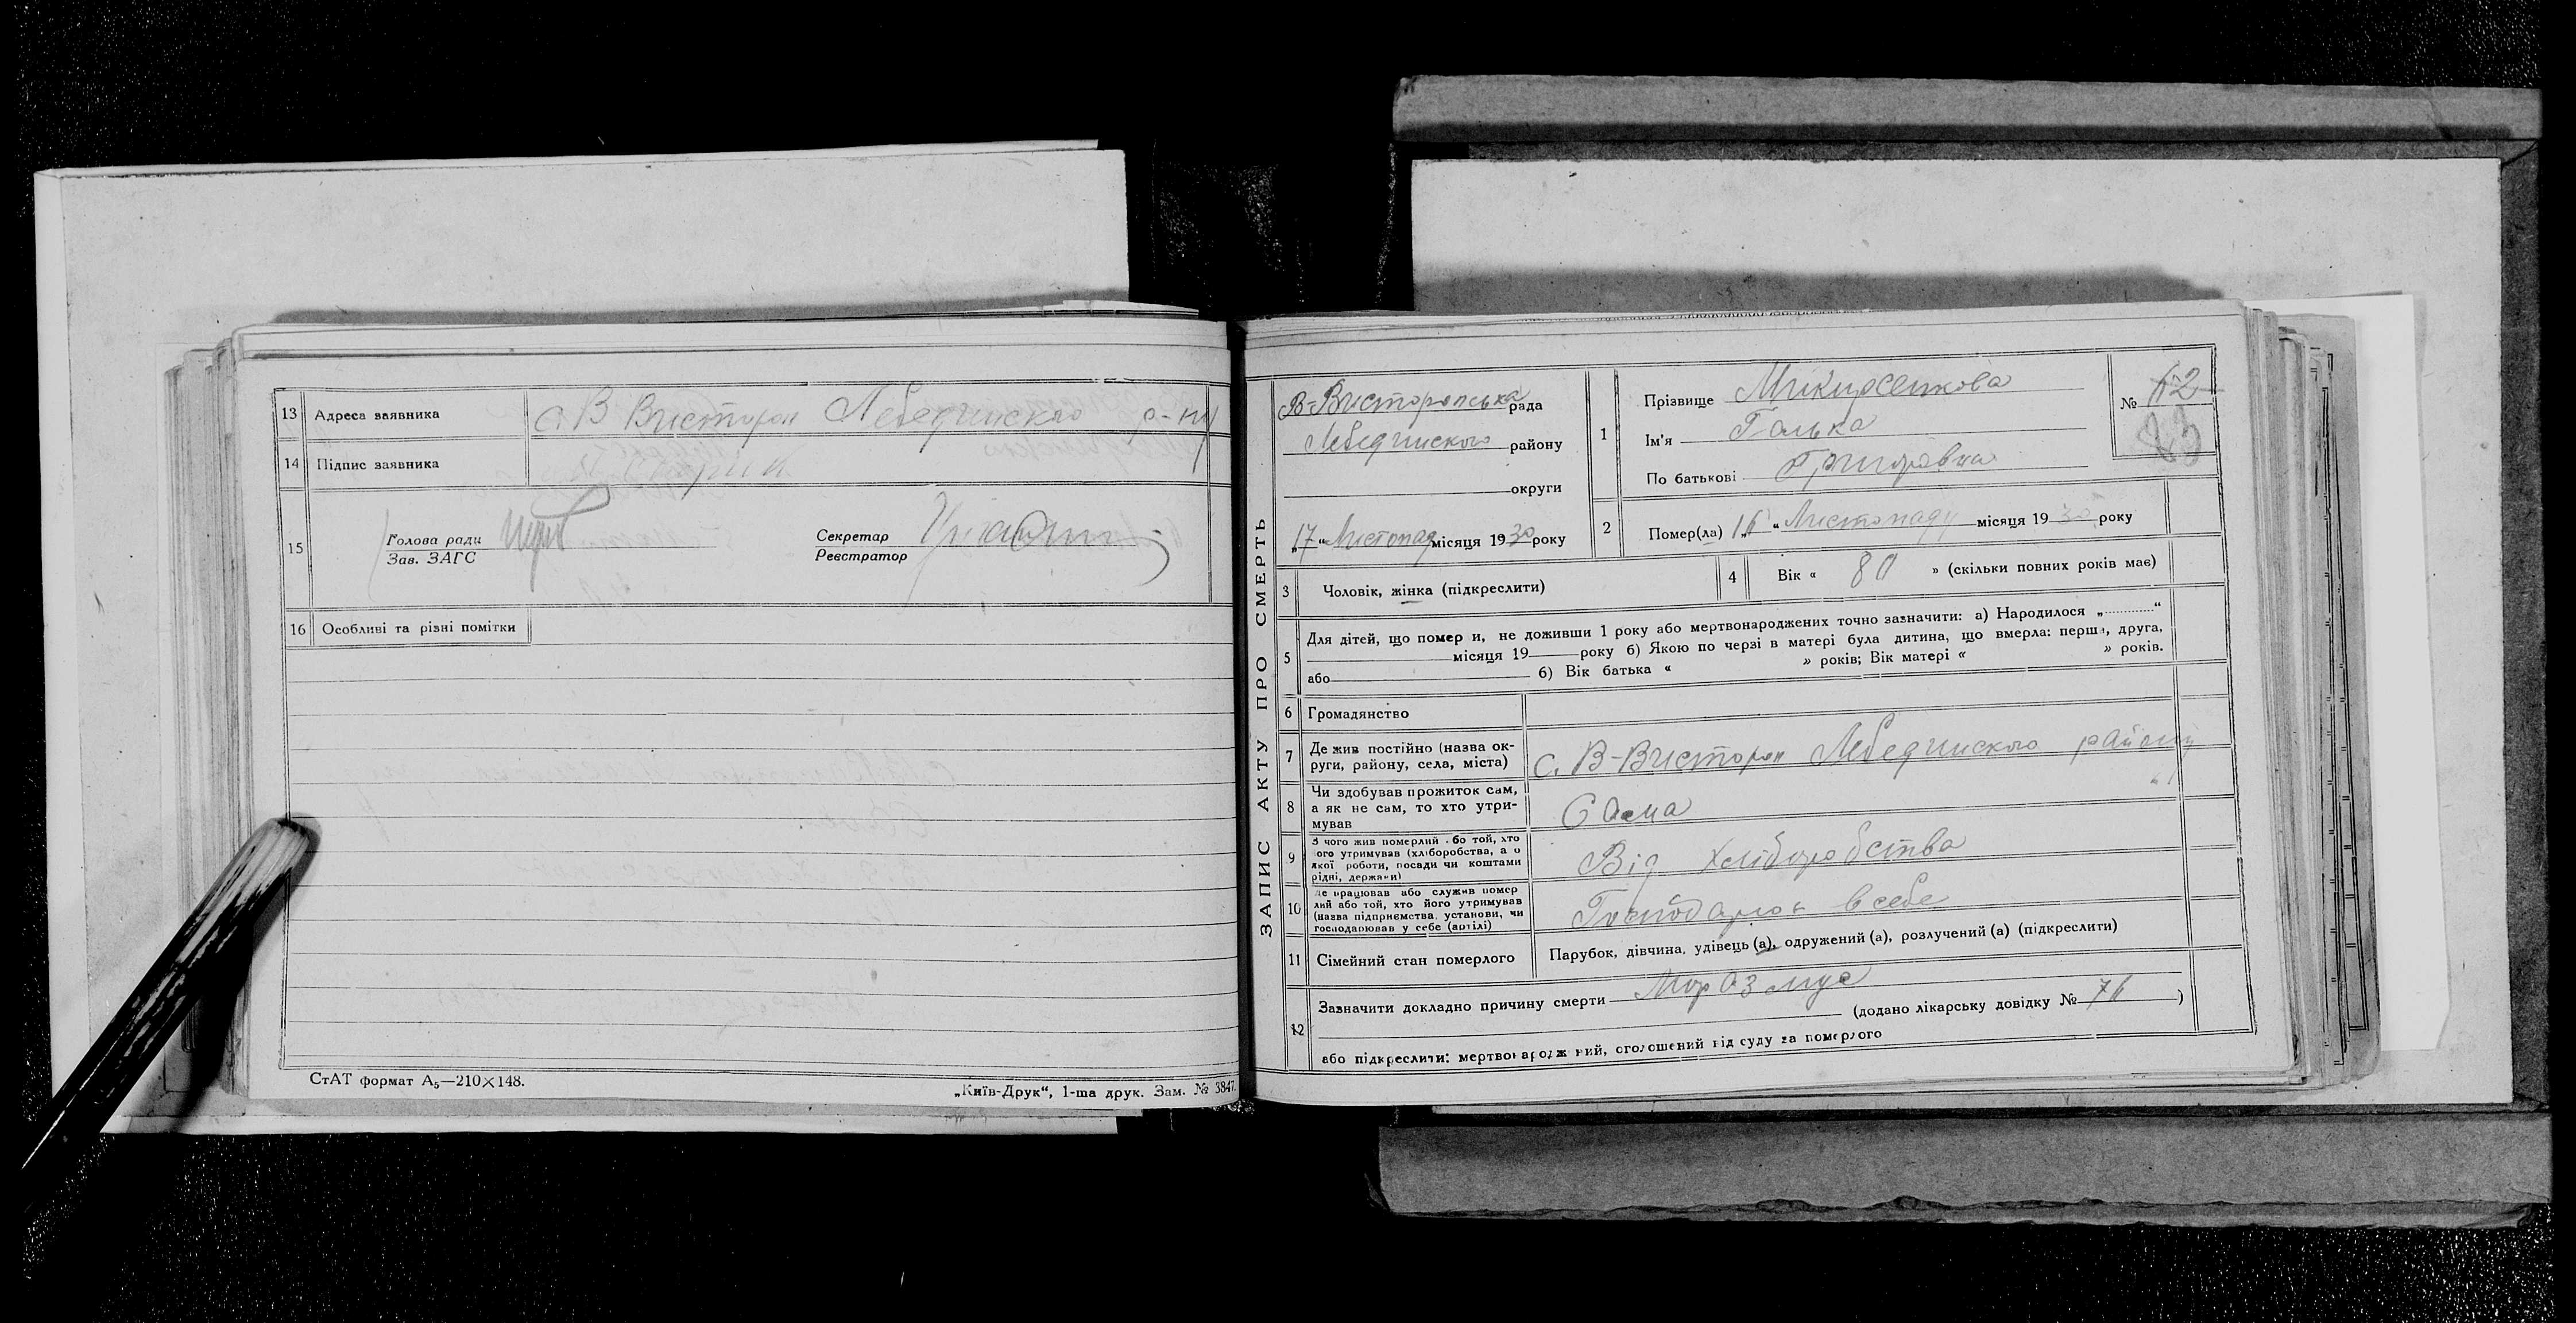 13 Адреса заявника с. В Вистороп Лебединського р-ну
14 Підпис заявника
15 Голова ради
Зав. ЗАГС
Секретар
Реєстратор
16 Особливі та різні помітки
СтАТ формат А5—210×148.
„Київ-Друк“, 1-ша друк. Зам. № 3847.
ЗАПИС АКТУ ПРО СМЕРТЬ
В-Висторопська рада
Лебединського району
округи
„17“ Листопад місяця 1930 року
1 Прізвище
Ім'я Галька
По батькові Григоровна
№ 62
83
2 Помер(ла) 16 „Листопаду місяця 1930 року
3 Чоловік, жінка (підкреслити)
4 Вік « 80 » (скільки повних років має)
5 Для дітей, що померли, не доживши 1 року або мертвонароджених точно зазначити: а) Народилося „ “
місяця 19 року б) Якою по черзі в матері була дитина, що вмерла: перша, друга,
або б) Вік батька « » років; Вік матері « » років.
6 Громадянство
7 Де жив постійно (назва ок-
руги, району, села, міста) с. В-Вистороп Лебединського району
8 Чи здобував прожиток сам,
а як не сам, то хто утри-
мував Сама
9 З чого жив померлий або той, хто
його утримував (хліборобства, а о
якої роботи, посади чи коштами
рідні, держави) Від хліборобства
10 Де працював або служив помер
лий або той, хто його утримував
(назва підприємства, установи, чи
господарював у себе (артілі) Господарюв в себе
11 Сімейний стан померлого Парубок, дівчина, удівець (а), одружений (а), розлучений (а) (підкреслити)
12 Зазначити докладно причину смерти Моразмус
(додано лікарську довідку № 76 )
або підкреслити: мертвонароджений, оголошений від суду за померлого